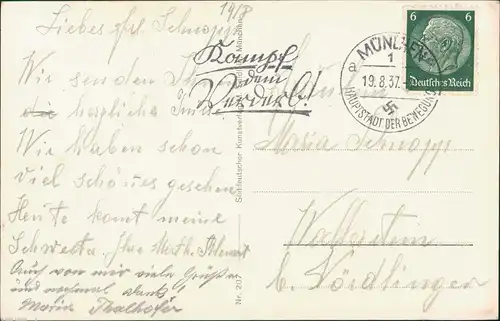 19/8
Liebes Frl. Schnapp!
Wir senden
herzliche
Wir haben schon
viel schönes gesehen
Heute komt meine
Schwester
Auch von mir viele Grüße
und nochmal Dank
Maria Thalhofer
Kampf
dem
Verderb!
Süddeutscher Kunstverlag München
Nr. 207
MÜNCHEN
1
a
19.8.37.
HAUPTSTADT DER BEWEGUNG
6 6
Deutsches Reich
Maria Schnapp
Wallerstein
b. Nördlingen